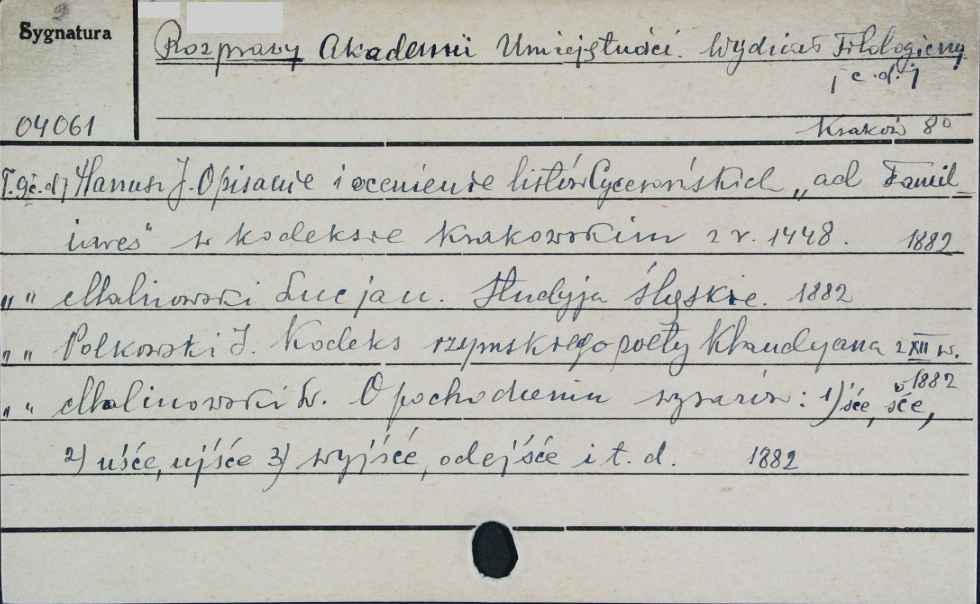 Sygnatura
Rozprawy Akademii Umiejętności. Wydział Filologiczny
/c.d./
04061
Kraków 8°
T.9/c.d/ Hanusz J. Opisanie i ocenienie listów Cycerońskich „ad Famil-
iares" w kodeksie krakowskim z r. 1448. 1882
„ " Malinowski Lucjan. Studyja śląskie. 1882
„ " Polkowski J. Kodeks rzymskiego poety Klaudyana z XII w.
1882
„ " Malinowski L. O pochodzeniu wyrazów: 1) śće, šće,
2) uśće, ujśće 3) wyjśćé, odejśće i t. d. 1882